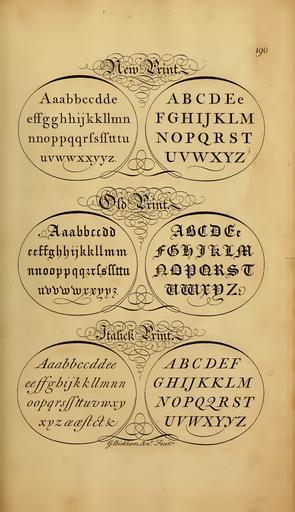 190
New Print.
Aaabbccdde
effgghhijkkllmn
nnoppqqrſsſſttu
uvwwxxyyz.
ABCDEe
FGHIJKLM
NOPQRST
UVWXYZ
Old Print.
Aaabbccdd
eeffghhijkkllmm
nnooppqqrſsſſttu
uvvwwxxyyz
ABCDEe
FGHJKLM
NOPQRST
UWXYZ:
Italick Print.
Aaabbccddee
eeffghijkkllmnn
oopqrsſſttuvwxy
xyz ææſtct&
ABCDEF
GHIJKKLM
NOPQQRST
UVWXYYZ
G. Bickham, Sen.r Fecit.